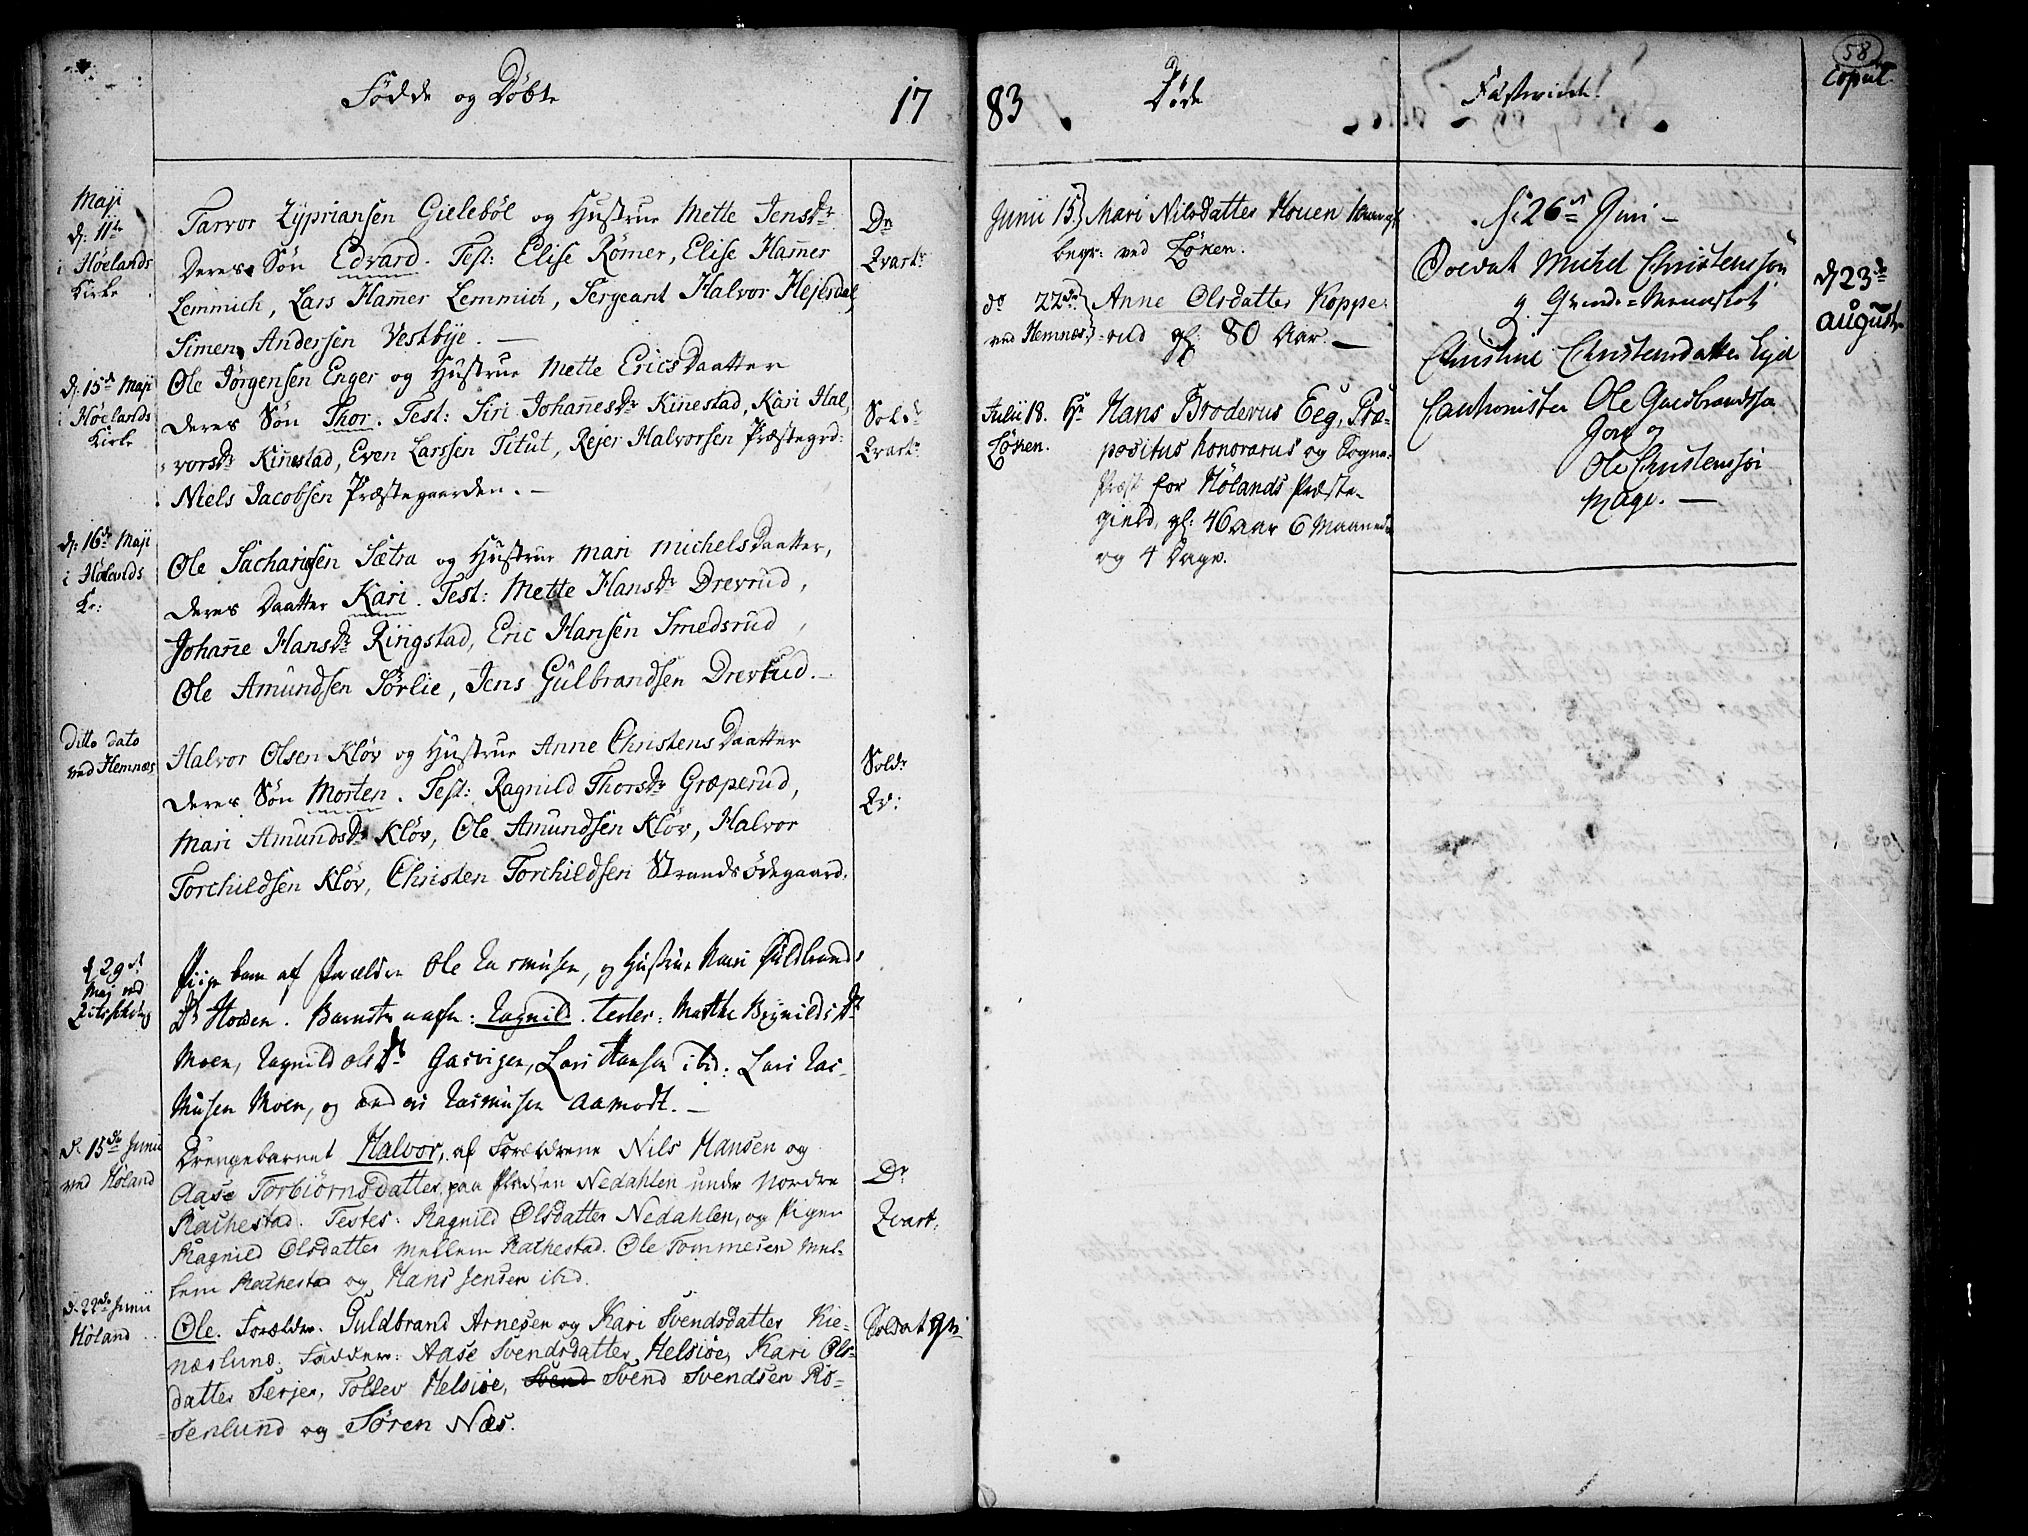 Fødde og Døbte
17
Maji
d: 11te
i Høelands
Kirke
Tarvor Zypriansen Gielebøl og Hustrue Mette Jensdr
Deres Søn Edvard. Test: Elise Rømer, Elise Ham̄er
Lemmich, Lars Ham̄er Lemmich, Sergeant Halvor Hejersdal,
Simen Andersen Vestbye. —
Dr
Qvart:
d: 15de Maji
i Høelands
Kirke
Ole Jørgensen Enger og Hustrue Mette EricsDaatter
deres Søn Thor. Test: Siri Johan̄esdr Kin̄estad, Kari Hal,
vorsdr Kin̄estad, Even Larssen Titut, Rejer Halvorsen Præstegrd:
Niels Jacobsen Præstegaarden. —
Soldr
Qvart:
d: 16de Maji
i Hølands
Kr:
Ole Sachariesen Sætra og Hustrue Mari MichelsDaatter,
deres Daatter Kari. Test: Mette Hansdr Drevrud,
Johan̄e Hansdr Ringstad, Eric Hansen Smedsrud,
Ole Amundsen Sørlie, Jens Gulbrandsen Drevrud. —
Ditto dato
ved Hemnæs
Halvor Olsen Kløv og Hustrue Anne ChristensDaatter
deres Søn Morten. Test: Ragnild Thorsdr Græperud,
Mari Amundsdr Kløv, Ole Amundsen Kløv, Halvor
Torchildsen Kløv, Christen Torchildsen Strandsødegaard.
Soldr
Qv:
d 29de
Maj ved
Pige barn af Forældre Ole Rasmusen, og Hustrue Mari Guldbrands
Dr Hoden. Barnets nafn: Ragnild. Testes: Marthe
Moen, Ragnild olsdr Gasvigen, Lars Hansen ibid: Lars Ras-
musen Moen, og anders Rasmusen Aamodt. —
d. 15de Junii
ved Høland
Drengebarnet Halvor, af Forældrene Nils Hansen og
Aase Torbiørnsdatter, paa Pladsen Nedahlen under Nordre
Rachestad. Testes: Ragnild Olsdatter Nedahlen, og Pigen
Ragnild Olsdatter Mellem Rachestad. Ole Tommesen Mel-
lem Rachestad og Hans Jensen ibid.
Dr
Qvart:
d. 22de Junii
Høland
Ole. Forældre. Guldbrand Arnesen og Kari Svendsdatter Kie-
næslund. Faddere: Aase Svendsdatter Helsiøe, Kari Ols-
datter Serjer, Tollev Helsiøe, Svend Svend Svendsen Ro-
senlund og Søren Næs.
Soldat
83
Døde
Junii 15. Mari Nilsdatter Houen
begr: ved Løken.
do 22de Anne Olsdatter Koppe-
ved Hemnæs rud gl: 80 Aar. —
Julii 18. Hr Hans Broderus Eeg, Præ-
Løken. positus honorarus og Sogne-
Præst for Hølands Præste-
gield, gl: 46 aar 6 Maaneder
og 4 Dage.
58
Copul.
d: 26de Juni —
Soldat Michel Christenssøn
Christine Christensdatter Lysd
Cautionister Ole Guldbrandssøn
og
Ole Christenssøn
Mage. —
d 23de
august